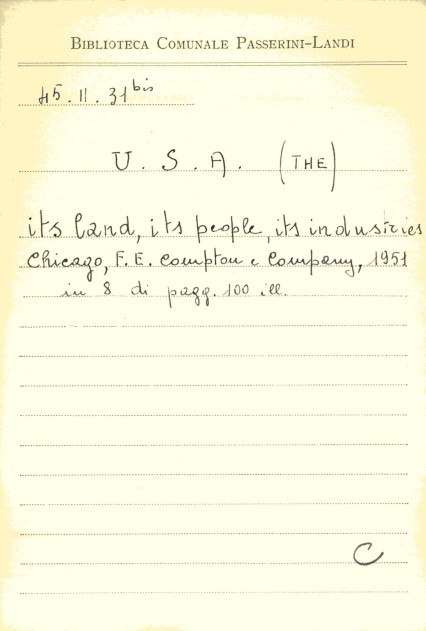 BIBLIOTECA COMUNALE PASSERINI-LANDI
45.II.31bis
U.S.A. (THE)
its land, its people, its industries
Chicago, F.E. Compton e Company, 1951
in 8 di pagg. 100 ill.
C